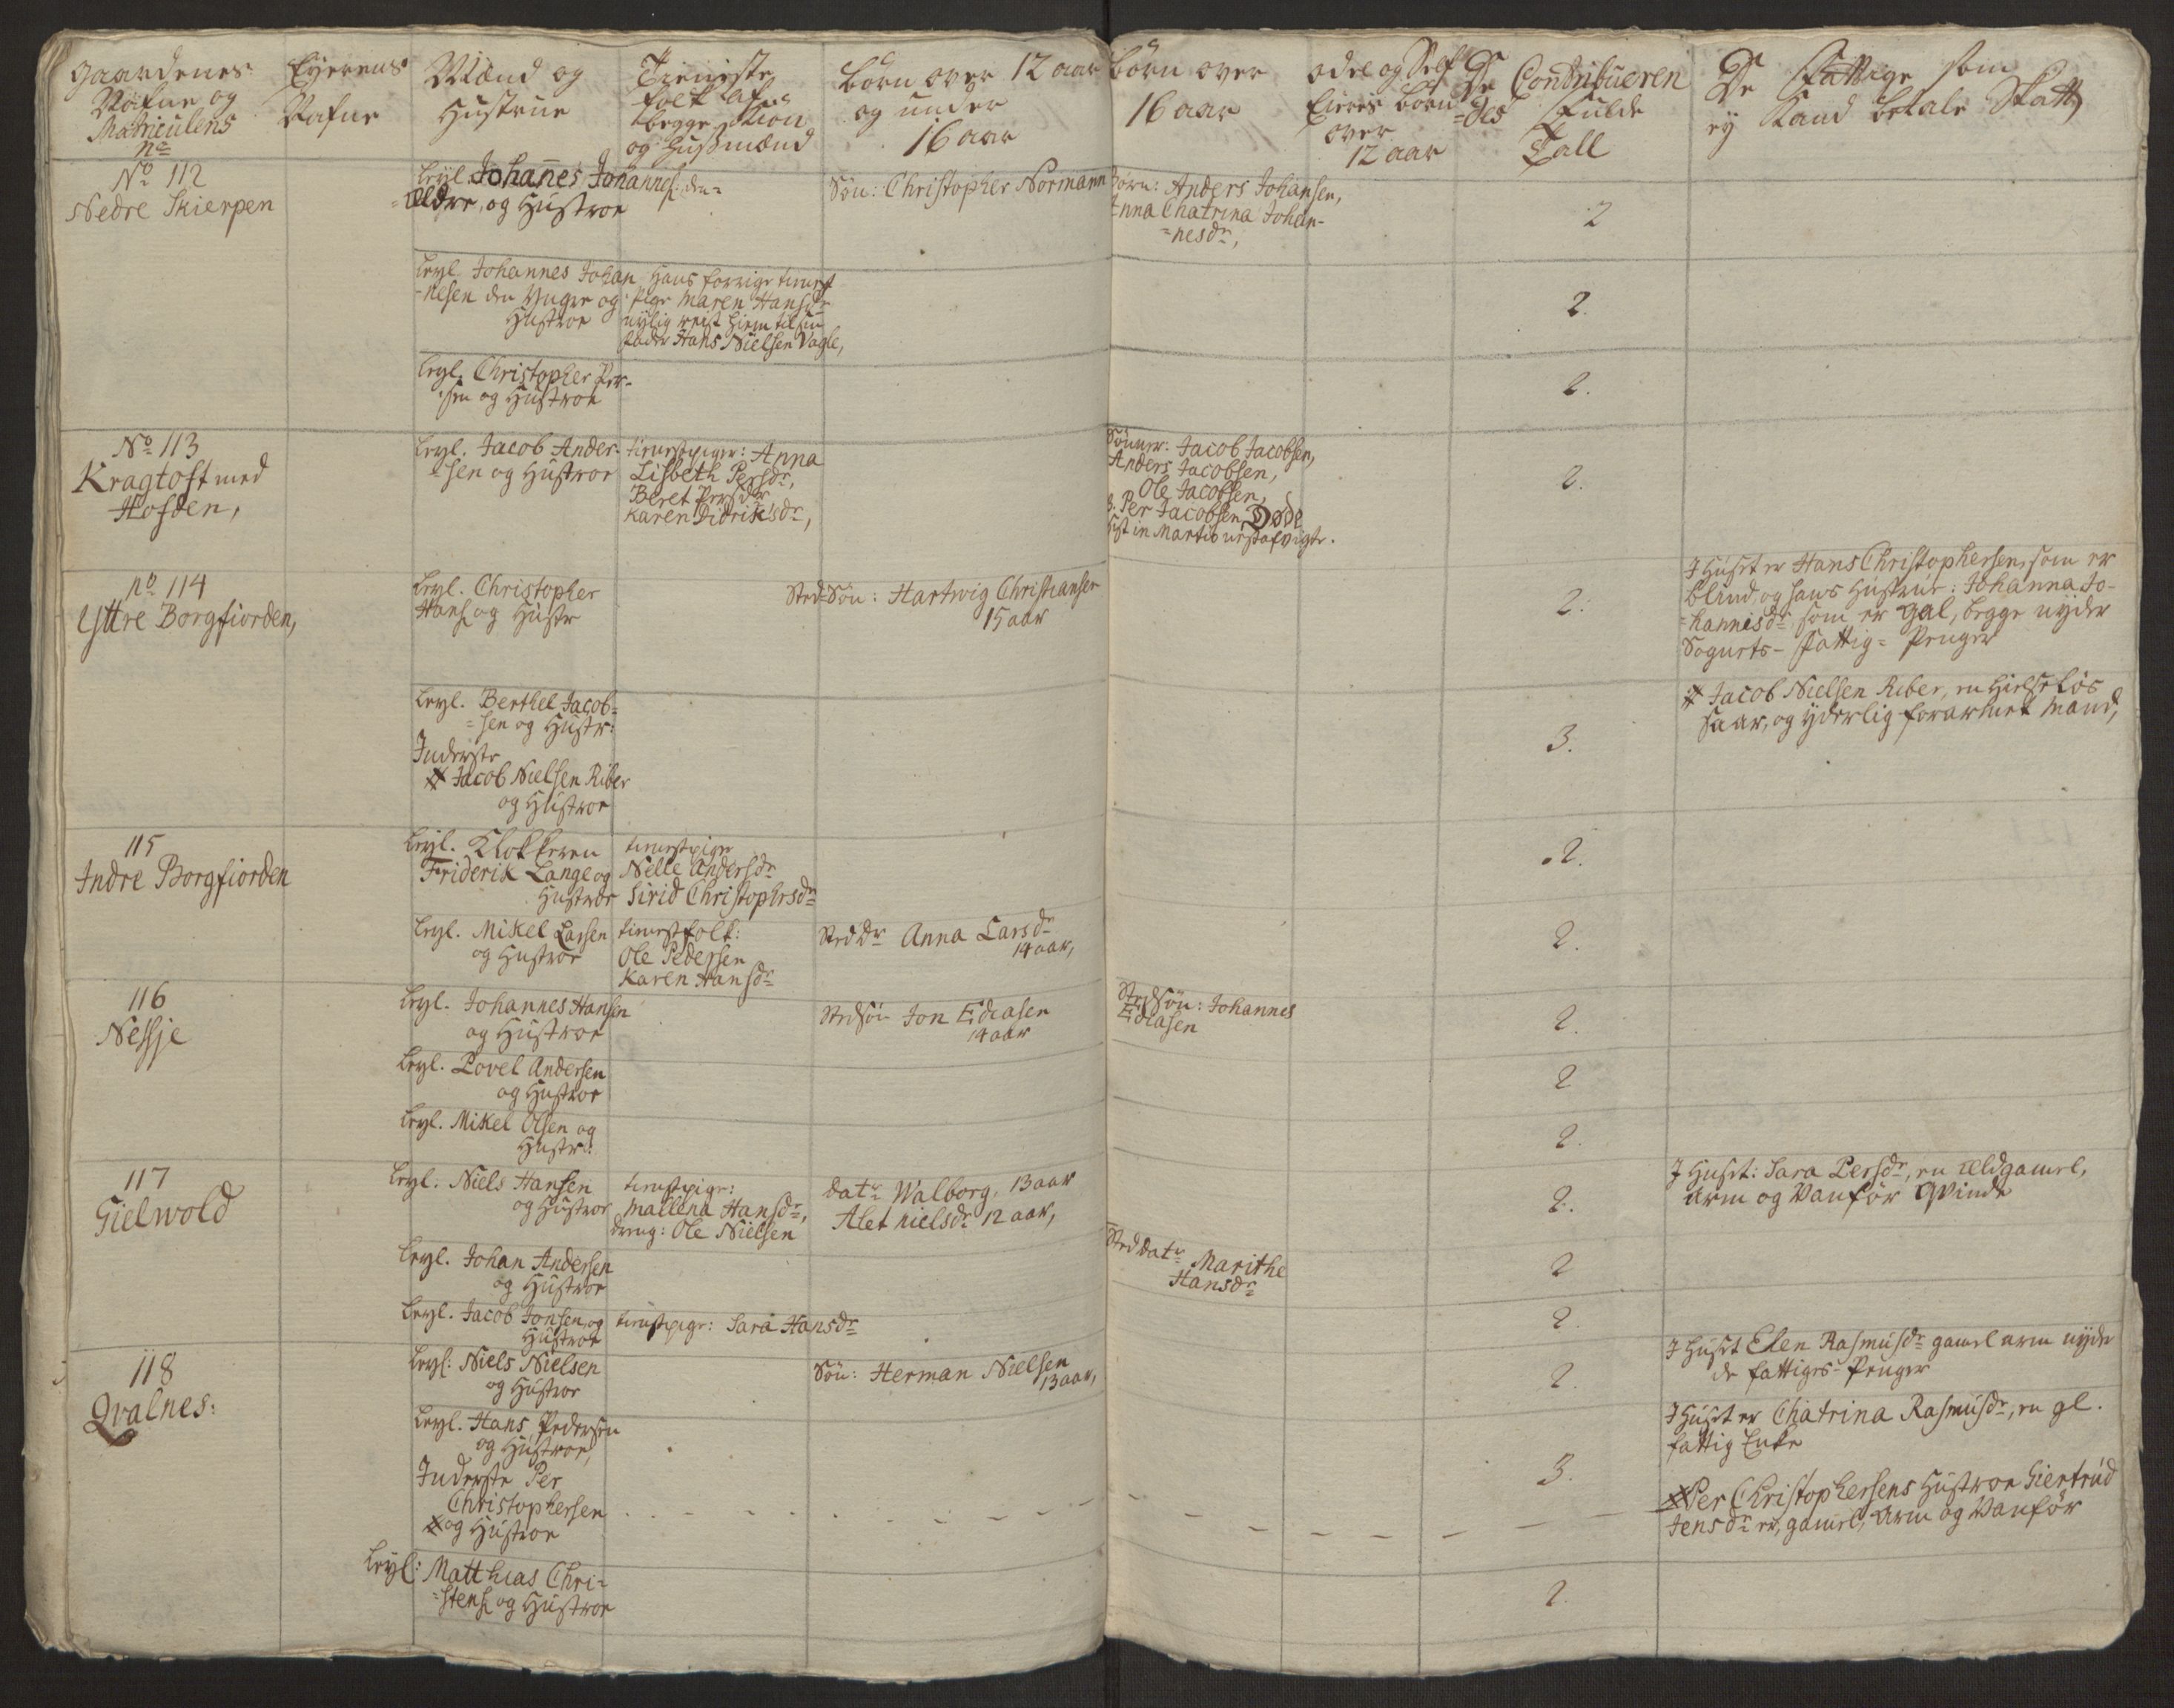 Gaardenes
Nafne og
Matriculens
No
Eyerens
Nafne
Mænd og
Hustrue
Tieniste
folk af
begge Kiön
og Husmænd
börn over 12 aar
og under
16 aar
börn over
16 aar
odel og Self
Eieres börn
over
12 aar
De Contribueren
=des Fulde
Tall
De Fattige som
ey Kand betale Skatt
No 112
Nedre Skierpen
Leyl. Johanes Johannes: den
Ældre, og Hustroe
Sön: Christopher Normann
börn: Anders Johansen,
Anna Chatrina Johan-
=nesdr,
2
Leyl. Johannes Johan
=nesen den Yngre og
Hustroe
Hans forrige tienest
pige Maren Hansdr
nylig reist hiem til sin
fader Hans Nielsen Vagle,
2.
Leyl. Christopher Per-
sen og Hustroe
2.
No 113
Kragtoft med
Hofden,
Leyl. Jacob Ander-
=sen og Hustroe
tienestpiger: Anna
Lisbeth Persdr,
Beret Persdr
Karen Didriksdr,
Sönner: Jacob Jacobsen,
Anders Jacobsen,
Ole Jacobsen,
Per Jacobsen, Döde
sist in Martio
2.
no 114
Yttre Borgfiorden,
Leyl. Christopher
Hans og Hustr
Sted=Sön: Hartwig Christiansen
15 aar
2.
I Huset er Hans Christophersen, som er
blind, og hans Hustrue: Johanna Jo-
=hannisdr som er gal, begge nyder
Sognets-Fattig=Penger
Leyl. Berthel Jacob=
=sen og Hustr:
Inderste
# Jacob Nielsen Riber
og Hustroe
3.
# Jacob Nielsen Riber, en Hielpelös
saar, og yderlig forarmet Mand,
115
Indre Borgfiorden
Leyl. Klokkeren
Friderik Lange og
Hustroe
tienestpige
Nelle Andersdr
Sirid Christophrsdr
2.
Leyl. Mikel Larsen
og Hustroe
tienestfolk:
Ole Pedersen
Karen Hansdr
Sted dr Anna Larsdr
14 aar,
2.
116
Nessje
Leyl. Johannes Hansen
og Hustroe
Stedsön Jon Ediasen
14 aar
Stedsön: Johannes
Ediasen
2.
Leyl. Povel Andersen
og Hustroe
2
Leyl. Mikel Olsen og
Hustr:
2.
117
Gielwold
Leyl. Niels Hansen
og Hustroe
tienestpige:
Mallena Hansdr,
dreng: Ole Nielsen
datr Walborg, 13 aar
Alet Nielsdr 12 aar,
2.
I Huset: Sara Persdr, en Ældgamel,
arm og Vanför Qvinde
Leyl. Johan Andersen
og Hustroe
Sted datr Marithe
Hansdr
2
Leyl. Jacob Jonsen, og
Hustroe
tienestpige: Sara Hansdr
2.
118
Qvalnes:
Leyl: Niels Nielsen
og Hustroe
Sön: Herman Nielsen
13 aar,
2.
I Huset Elen Rasmusdr gamel arm nyde
de fattiges-Penger
Leyl. Hans Pedersen
og Hustroe,
Inderste Per
Christophersen
# og Hustroe
3.
I Huset er Chatrina Rasmusdr, en gl.
fattig Enke
# Per Christophersens Hustroe Giertrud
Jensdr er, gamel, Arm og Vanför
Leyl: Matthias Chri=
=stens: og Hustroe
2.